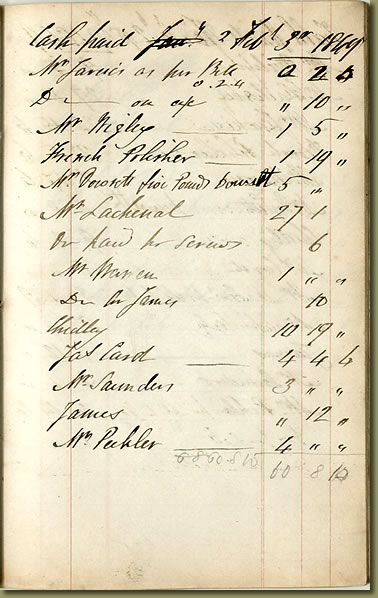 Cash paid Jany & Feby 3d 1869
Mr Jarvis as per Bill 0 2 4
0.2.4
Do on a/c " 10 "
Mr Wigley 1 5 "
French Polisher 1 19 "
Mr Dowsett five Pounds Dowsett 5 "
Mr Lachenal 27 1
Do paid for Screws 6
Mr Warren 1 " "
Do for James 10
Chidley 10 19 "
Jas Card 4 4 6
Mr Saunders 3 " "
James " 12 "
Mr Pechler 4 " "
60 8 10